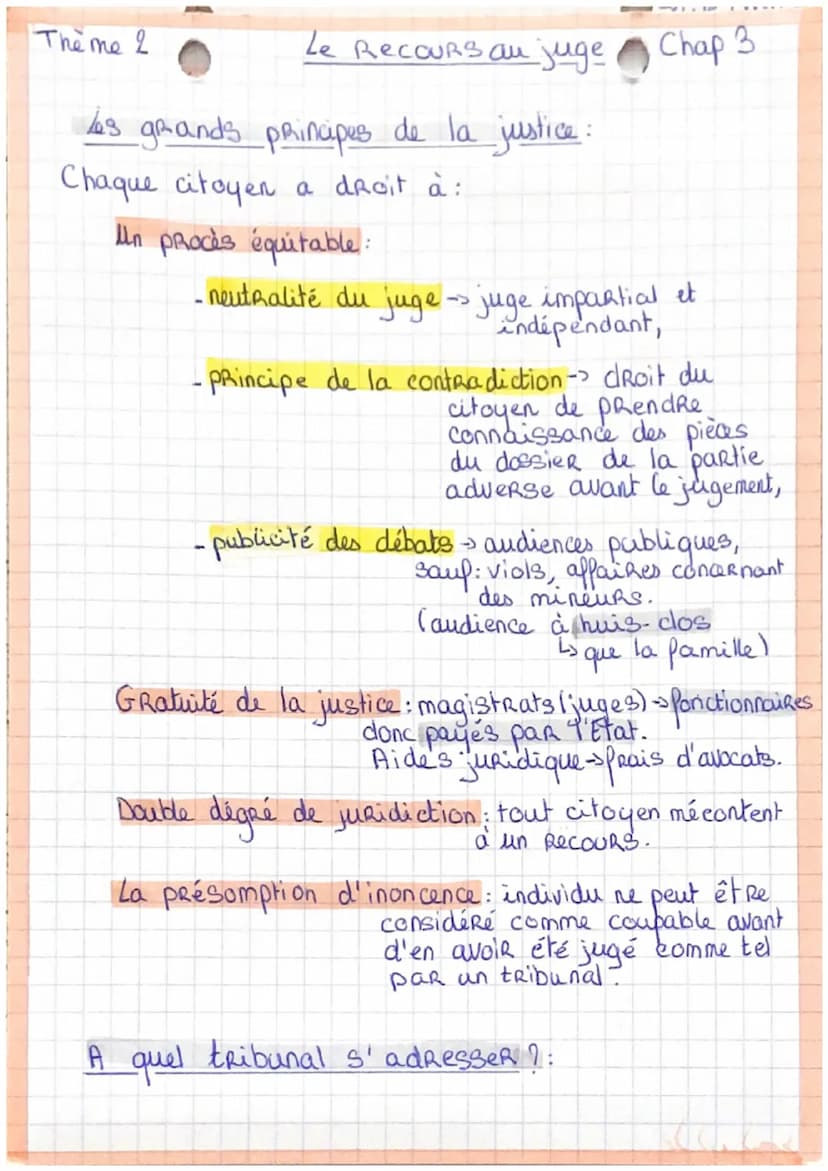 Thème 2 Le Recours au juge Chap 3
Les grands principes de la justice :
Chaque citoyen a droit à :
Un procès équitable :
- neutralité du juge -> juge impartial et
indépendant,
- principe de la contradiction -> droit du
citoyen de prendre
connaissance des pièces
du dossier de la partie
adverse avant le jugement,
- publicité des débats -> audiences publiques,
sauf : viols, affaires concernant
des mineurs.
(audience à huis-clos
↳ que la famille)
Gratuité de la justice : magistrats (juges) -> fonctionnaires
donc payés par l'État.
Aides juridique -> frais d'avocats.
Double dégré de juridiction : tout citoyen mécontent
à un recours.
La présomption d'inoncence : individu ne peut être
considéré comme coupable avant
d'en avoir été jugé comme tel
par un tribunal.
A quel tribunal s'adresser ? :